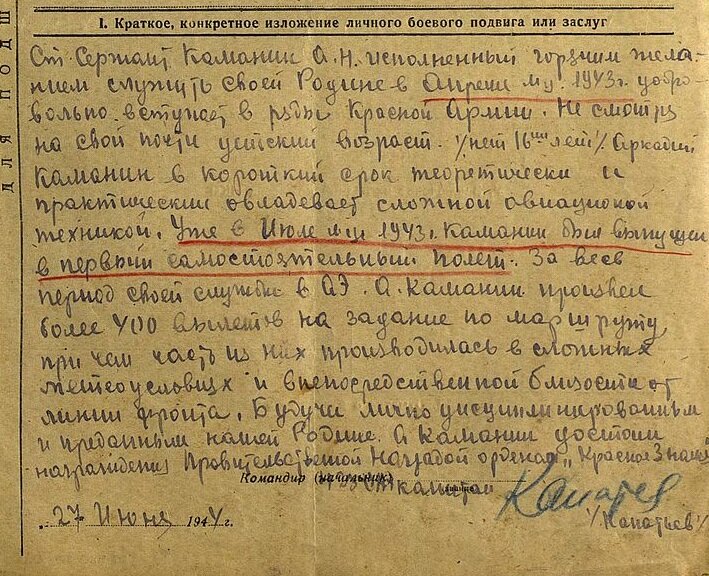 I. Краткое, конкретное изложение личного боевого подвига или заслуг
ДЛЯ ПОДШ
Ст. Сержант Каманин А.Н. исполненный горячим жела-
нием служить своей Родине в Апреле м-це 1943г. добро-
вольно вступает в ряды Красной Армии. Не смотря
на свой почти детский возраст. /нет 16ти лет/ Аркадий
Каманин в короткий срок теоретически и
практически овладевает сложной авиационой
техникой. Уже в Июле м-це 1943г. Каманин был выпущен
в первый самостоятельный полет. За весь
период своей службы в АЭ. А. Каманин произвел
более 400 вылетов на задание по маршруту,
при чем часть из них производилась в сложных
метеоусловиях и в непосредственной близости от
линии фронта. Будучи лично дисциплинированным
и преданным нашей Родине. А Каманин достоин
награждения Правительственной Наградой орденом „Красное Знамя"
Командир (начальник)
капитан
/Капатьев/
27 Июня 1944г.